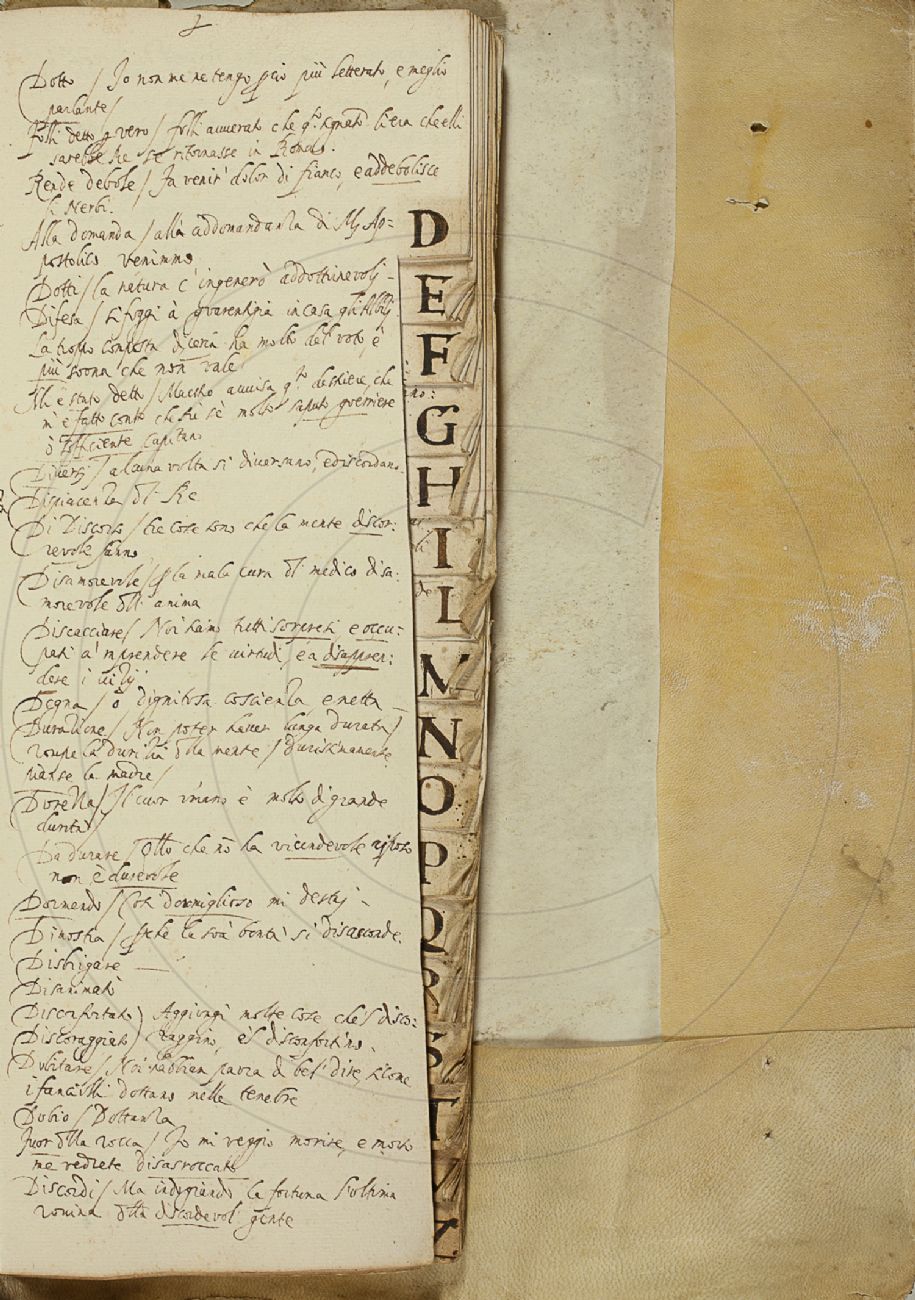 Dotto / Io non me ne tengo più letterato, e meglio
parlante /
Folli detto vero / folli avverato che li era che elli
sarebbe Re se ritornasse in Roma.
Rende debole / Fa venir dolor di fianco, e addebolisce
li Nerbi.
Alla domanda / alla addomandanza di Ap=
postolico venimmo
Dotti / la natura c'ingenerò addottrinevoli -
Difesa / à guarentigia in casa
La troppo composta diceria ha molto del voto, e
più suona che non vale
Maestro avvisa destriere, che
m'è fatto conto che tu sè molto saputo guerriere
ò sofficiente Capitano
Diversi / alcuna volta si diversano, e discordano.
Dispiacenza del Re
Di Discorso / tre cose sono che la mente discor:
revole fanno
Disamorevole / la mala cura del medico disa:
morevole dell'anima
Discacciare / Noi siamo tutti sorpresi, e occu:
pati a imprendere le virtudi, e a disappren:
dere i vitij
Degna / ò dignitosa coscienza, e netta -
Durazione / Non poter haver lunga durata /
rompe la durizia della mente / durissimamente
pianse la madre /
Durezza / Il cuor umano è molto di grande
durità
Da durare / Otto che nò ha vicendevole riposo
non è durevole
Dormendo / Così dormiglioso mi destaj -
Dimostra / perche la suà bontà si disasconde.
Disbrigare —
Disanimato
Disconfortato) Aggiungi molte cose che 'l disco:
Discoraggiato) raggino, e 'l disconfortino.
Dubitare / Noi habbiam paura di bel dire, sicome
i fanciulli dottano nelle tenebre
Dubio / Dottanza
Fuor della rocca / Io mi veggio morire, e morto
me vedrete disasroccato
Discordi / Ma indugiando la fortuna l'ultima
rovina della discordevol gente
D
E
F
G
H
I
L
M
N
O
P
Q
R
S
T
V
Z